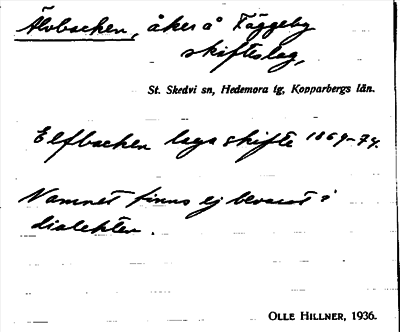 Älvbacken, åker å Fäggeby
skifteslag,
St. Skedvi sn, Hedemora tg, Kopparbergs län.
Elfbacken laga skifte 1869-74.
Namnet finns ej bevarat i
dialekten.
OLLE HILLNER, 1936.